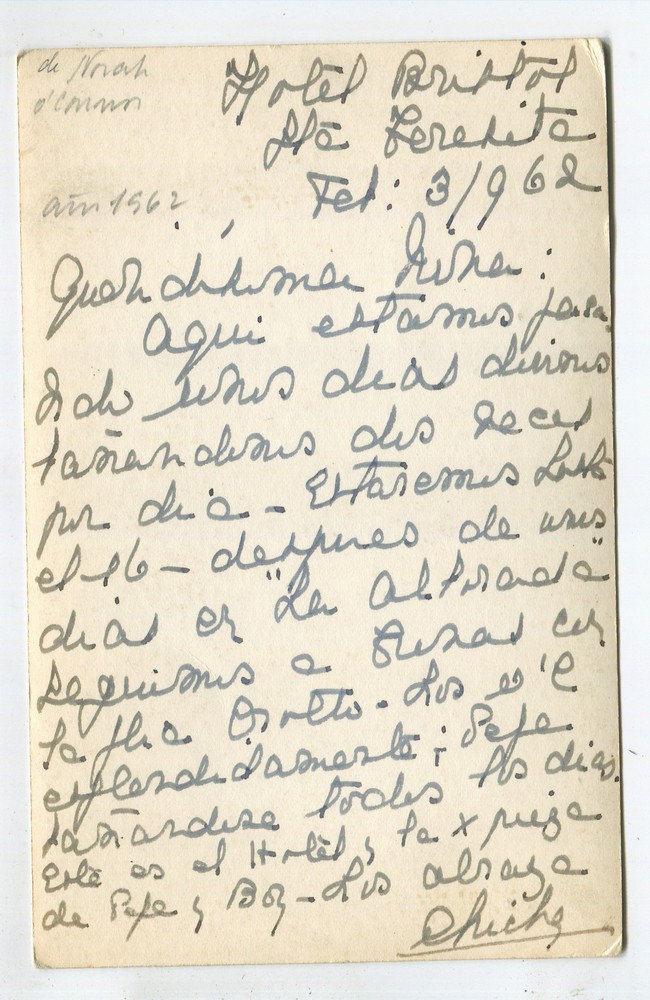 de Norah
O'Connor
Hotel Bristol
Sta Teresita
Tel: 3/962
año 1962
Queridisima Nina:
Aqui estamos pasa
ndo unos dias divinos
bañandonos dos veces
por dia - Estaremos hasta
el 16 - despues de unos
dias en "La Alborada"
seguimos a
la flia - Los
esplendidamente; Pepe
bañandose todos los dias.
Este es el Hotel y la x pieza
de Pepe y Boy - Los abraza